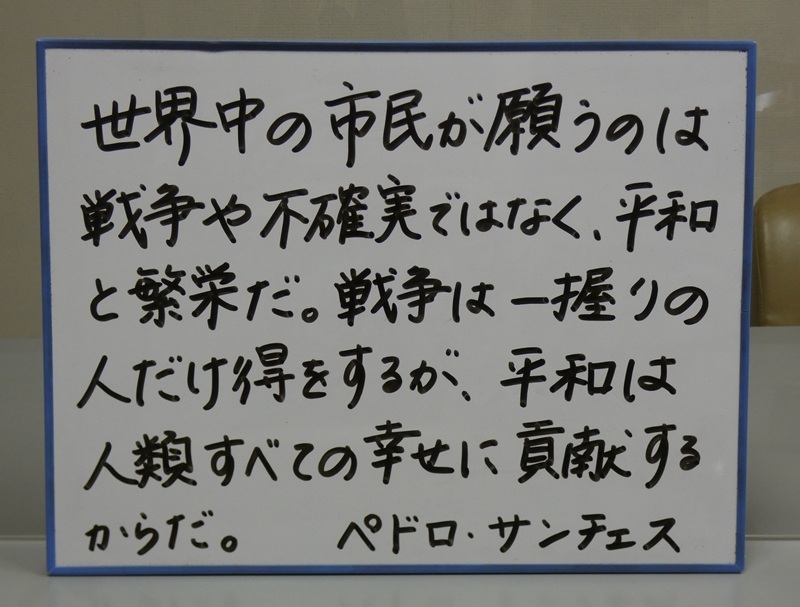 世界中の市民が願うのは
戦争や不確実ではなく、平和
と繁栄だ。戦争は一握りの
人だけ得をするが、平和は
人類すべての幸せに貢献する
からだ。 ペドロ・サンチェス